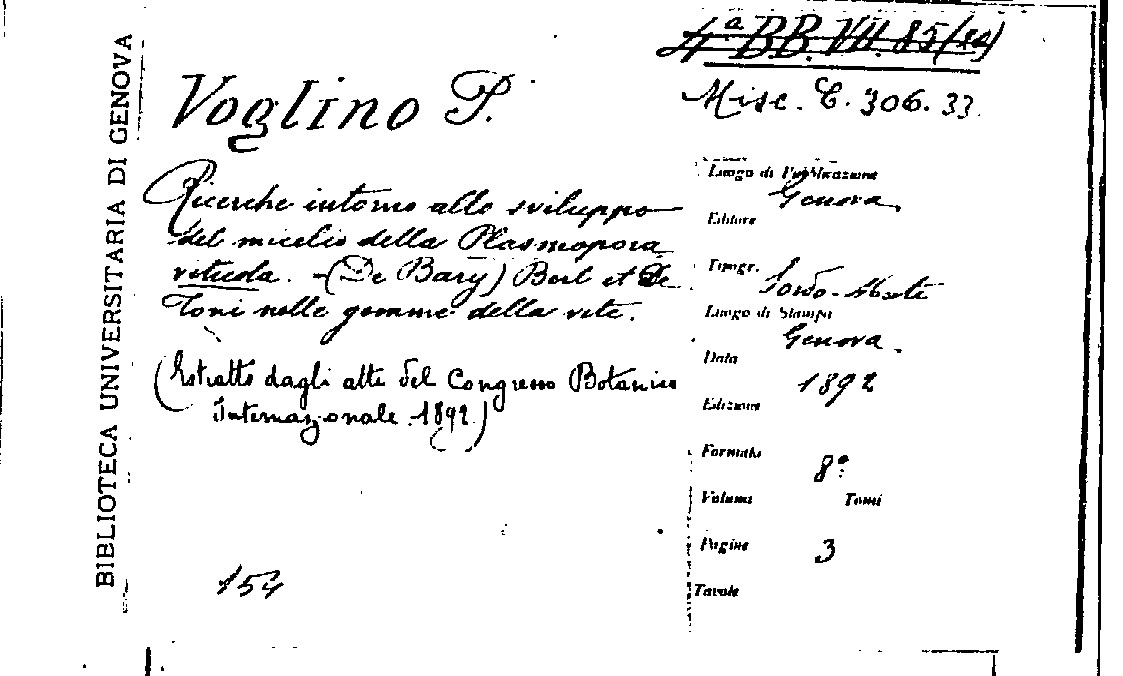 BIBLIOTECA UNIVERSITARIA DI GENOVA
4ª BB. VII. 85
Misc. C. 306. 33.
Voglino P.
Ricerche intorno allo sviluppo
del micelio della Plasmopora
viticola. - (De Bary) Berl et De
Toni nelle gemme della vite.
(Estratto dagli atti del Congresso Botanico
Internazionale 1892)
154
Luogo di Pubblicazione
Genova
Editore
Tipogr.
Sordo-Muti
Luogo di Stampa
Genova.
Data
1892
Edizione
Formato
8º
Volumi Tomi
Pagine
3
Tavole